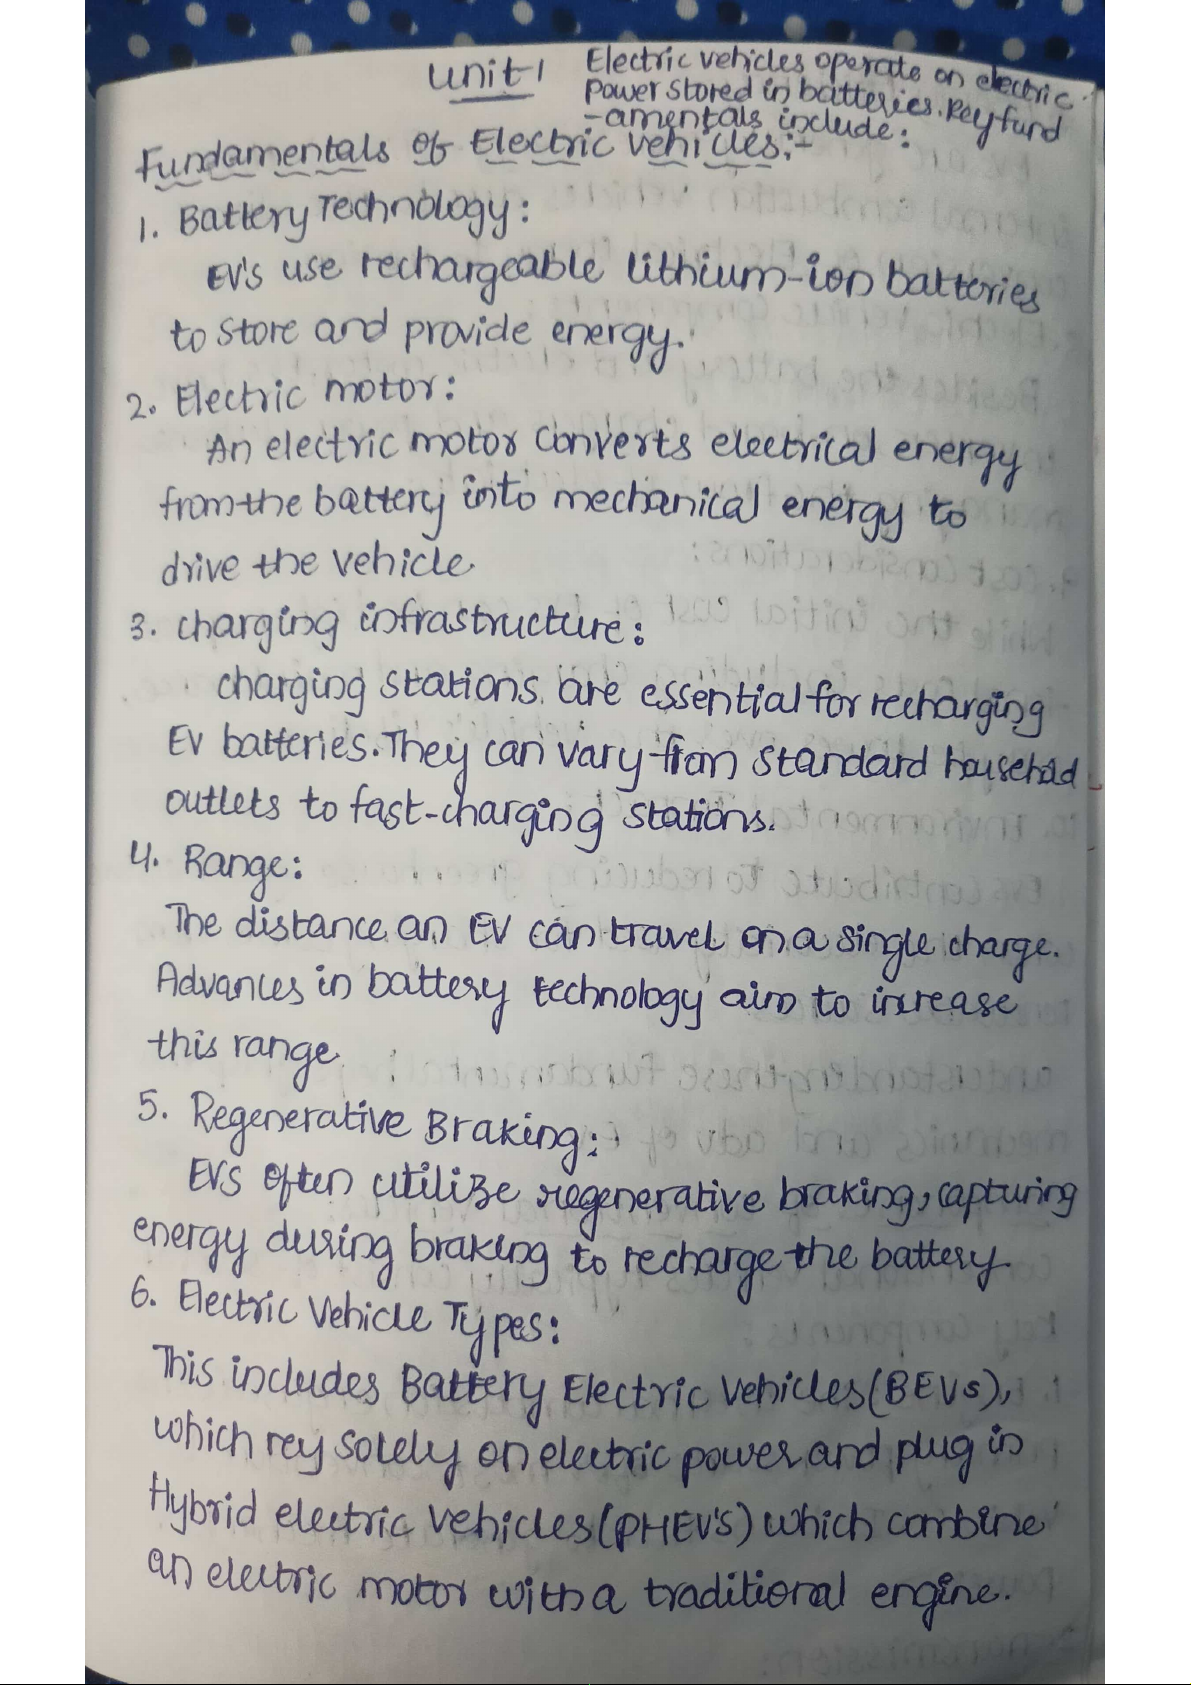 Unit 1
Electric vehicles operate on electric
power stored in batteries. Key fund
-amentals include:
Fundamentals of Electric vehicles:-
1. Battery Technology:
EV's use rechargeable lithium-ion batteries
to store and provide energy.
2. Electric motor:
An electric motor converts electrical energy
from the battery into mechanical energy to
drive the vehicle.
3. charging infrastructure:
charging stations are essential for recharging
EV batteries. They can vary from standard household
outlets to fast-charging stations.
4. Range:
The distance an EV can travel on a single charge.
Advances in battery technology aim to increase
this range.
5. Regenerative Braking:
EVS often utilize regenerative braking, capturing
energy during braking to recharge the battery.
6. Electric Vehicle Types:
This includes Battery Electric Vehicles (BEVs),
which rey solely on electric power and plug in
Hybrid electric vehicles (PHEV'S) which combine
an electric motor with a traditional engine.